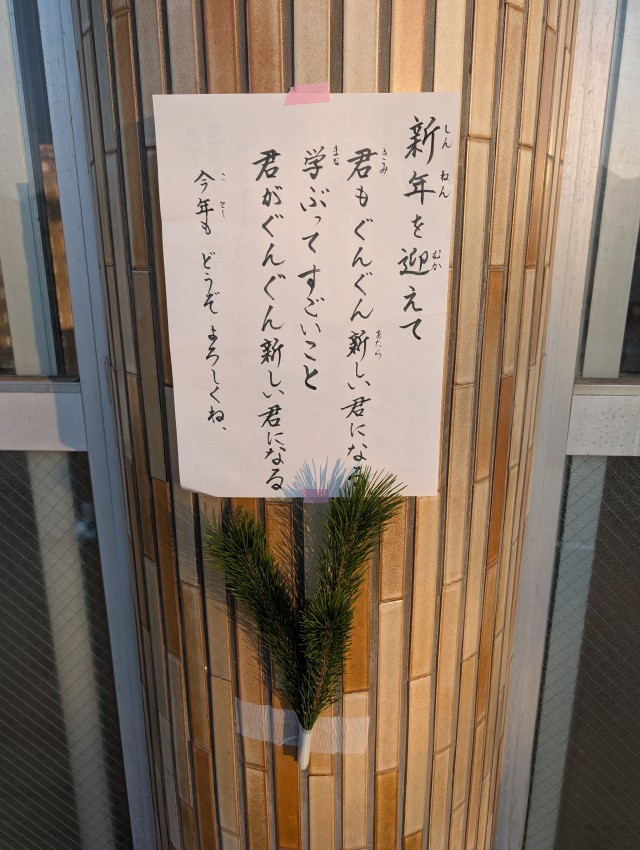 新年を迎えて
君もぐんぐん新しい君になる
学ぶってすごいこと
君がぐんぐん新しい君になる
今年も どうぞ よろしくね、